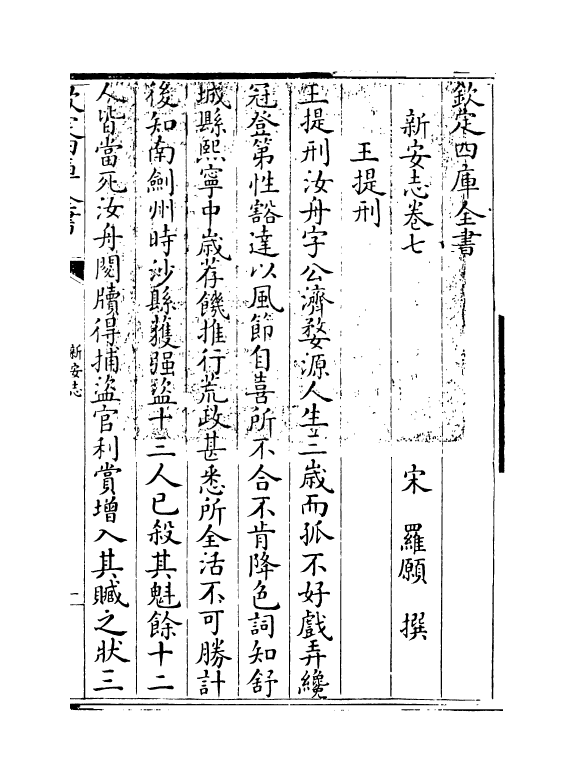 欽定四庫全書
新安志卷七
宋 羅願 撰
王提刑
王提刑汝舟字公濟婺源人生三歳而孤不好戲弄纔
冠登第性豁達以風節自喜所不合不肯降色詞知舒
城縣熙寧中歳荐饑推行荒政甚悉所全活不可勝計
後知南劍州時沙縣獲强盜十三人已殺其魁餘十二
人皆當死汝舟閱牘得捕盜官利賞增入其贓之狀三
欽定四庫全書
新安志